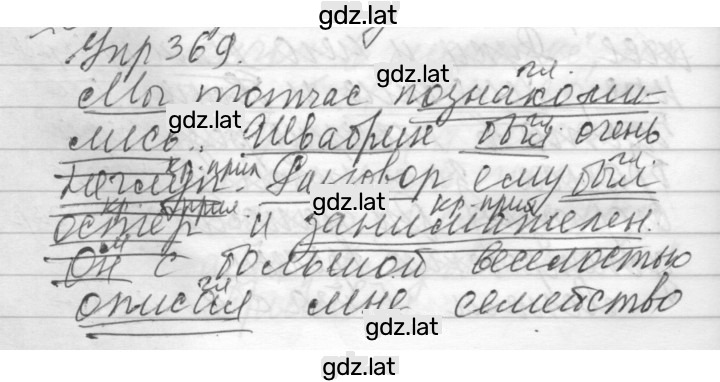 gdz.lat
Упр 369.
gdz.lat
гл.
Мы тотчас познакоми-
gdz.lat
лись. Швабрин был очень
гл.
кр. прил
гл.
неглуп. Разговор ему был
gdz.lat
кр. прил. кр. прил
остер и занимателен.
Он с большой веселостью
гл
описал мне семейство
gdz.lat
gdz.lat